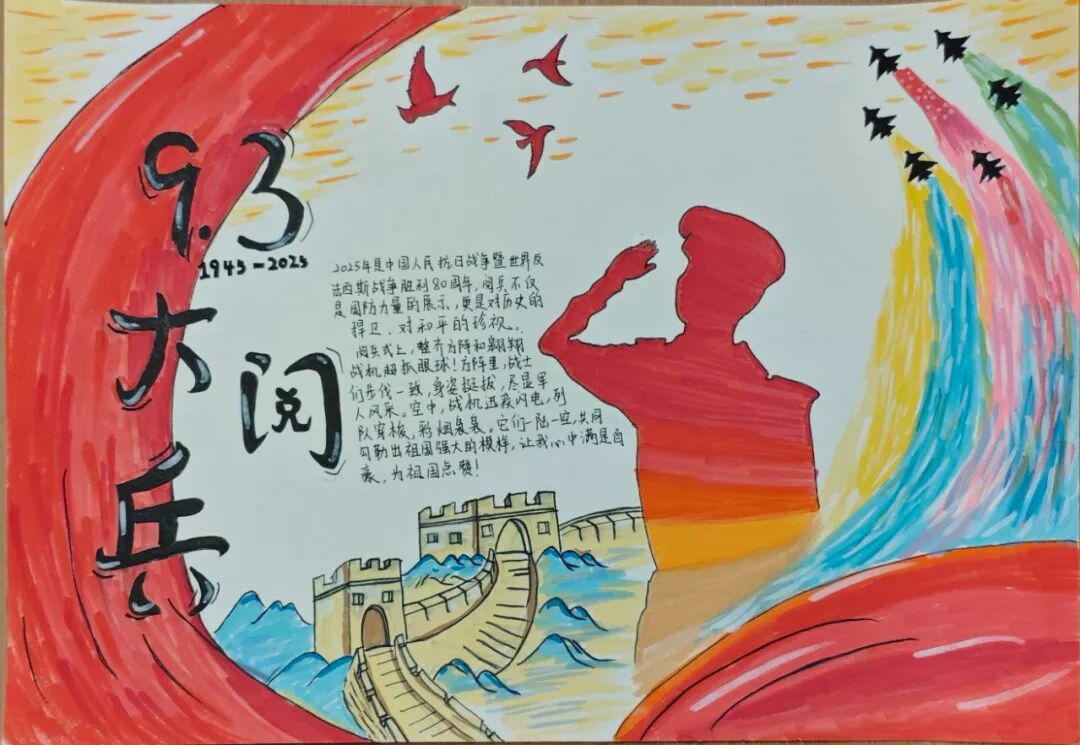 9.3
1945-2025
大
阅
兵
2025年是中国人民抗日战争暨世界反
法西斯战争胜利80周年,阅兵不仅
是国防力量的展示,更是对历史的
捍卫、对和平的珍视。
阅兵式上,整齐方阵和翱翔
战机超抓眼球!方阵里,战士
们步伐一致,身姿挺拔,尽显军
人风采。空中,战机迅疾闪电,列
队穿梭,彩烟袅袅。它们一陆一空,共同
勾勒出祖国强大的模样,让我心中满是自
豪,为祖国点赞!